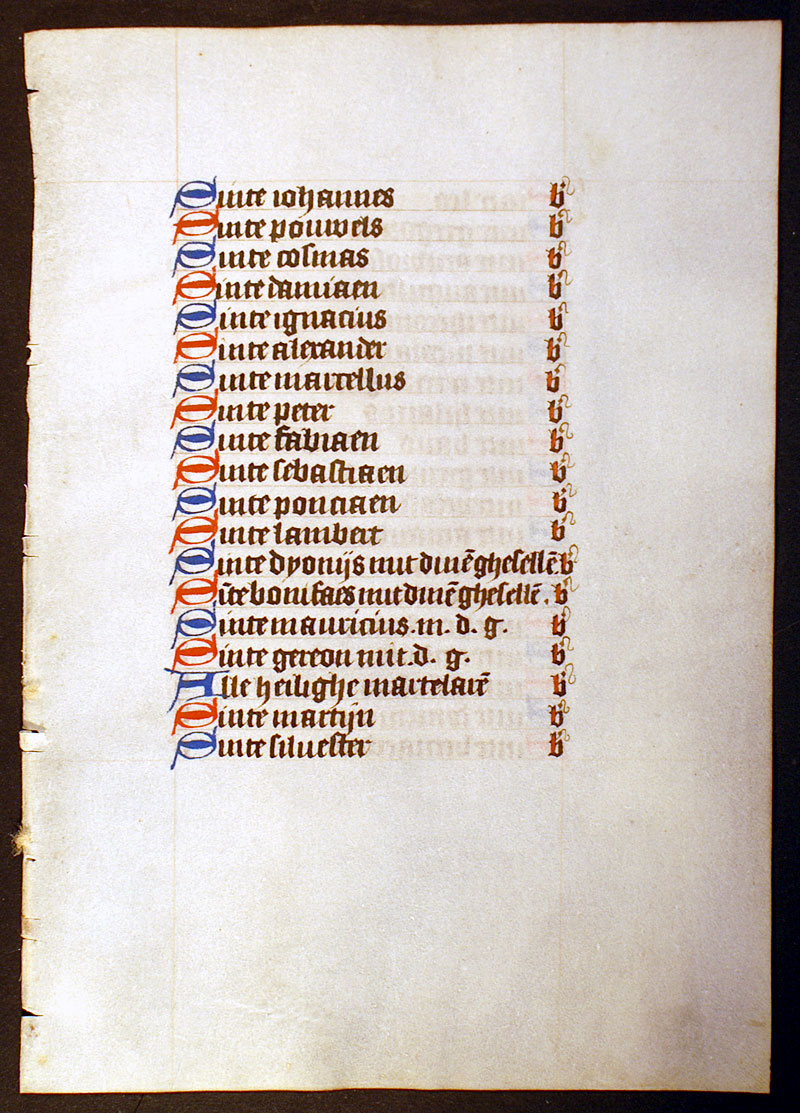 Sinte iohannes b
Sinte pouwels b
Sinte cosmas b
Sinte damiaen b
Sinte ignacius b
Sinte alexander b
Sinte marcellus b
Sinte peter b
Sinte fabiaen b
Sinte sebastiaen b
Sinte ponciaen b
Sinte lambert b
Sinte dyonijs mit dinē ghesellē b
Sīte bonifaes mit dinē ghesellē. b
Sinte mauricius. m. d. g. b
Sinte gereon mit. d. g. b
Alle heilighe martelarē b
Sinte martijn b
Sinte siluester b